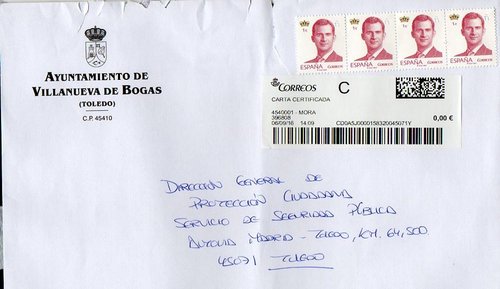 AYUNTAMIENTO DE
VILLANUEVA DE BOGAS
(TOLEDO)
C.P. 45410
1€
1€
1€
1€
ESPAÑA
ESPAÑA
ESPAÑA
ESPAÑA
CORREOS
C
CARTA CERTIFICADA
4540001 - MORA
396808
06/09/16 14:09
CD0A5J0000158320045071Y
0,00 €
DIRECCIÓN GENERAL DE
PROTECCIÓN CIUDADANA
SERVICIO DE SEGURIDAD PÚBLICA
AUTOVIA MADRID-TOLEDO, KM. 64,500
45071 TOLEDO